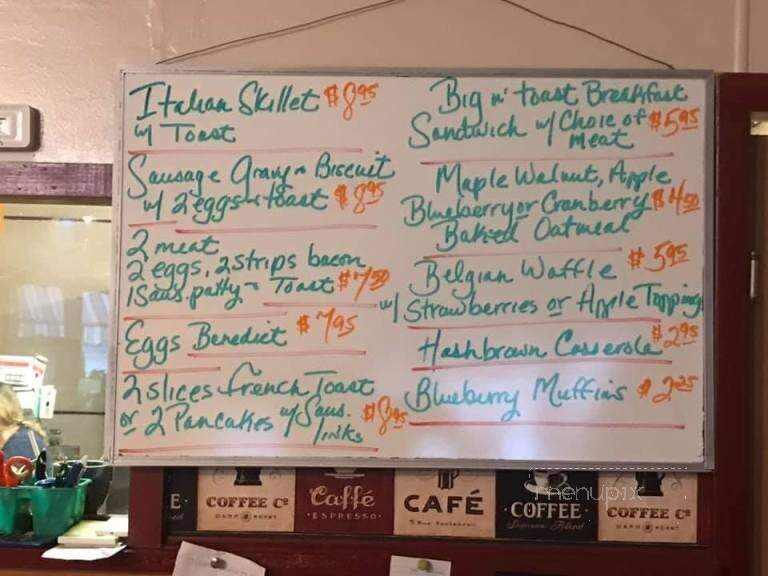 Italian Skillet $8.95
w/ Toast
Sausage Gravy n Biscuit
w/ 2 eggs n toast $8.95
2 meat
2 eggs, 2 strips bacon
1 Saus. patty n Toast $7.50
Eggs Benedict $7.95
2 slices French Toast
or 2 Pancakes w/ Saus. $8.95
links
Big n' toast Breakfast
Sandwich w/ Choice of $5.95
meat
Maple Walnut, Apple
Blueberry or Cranberry $4.50
Baked Oatmeal
Belgian Waffle $5.95
w/ Strawberries or Apple Topping
Hashbrown Casserole $2.95
Blueberry Muffins $2.25
menupix
E.
COFFEE Cº
DARK ROAST
Caffé
ESPRESSO
CAFÉ
COFFEE
Supreme Blend
COFFEE Cº
DARK ROAST